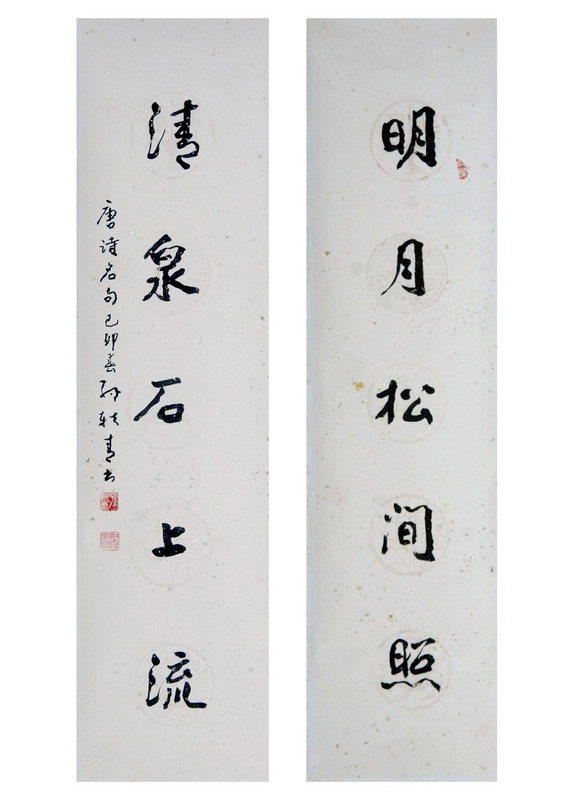 明月松涧照
清泉石上流
唐诗名句己卯春孙轶青书